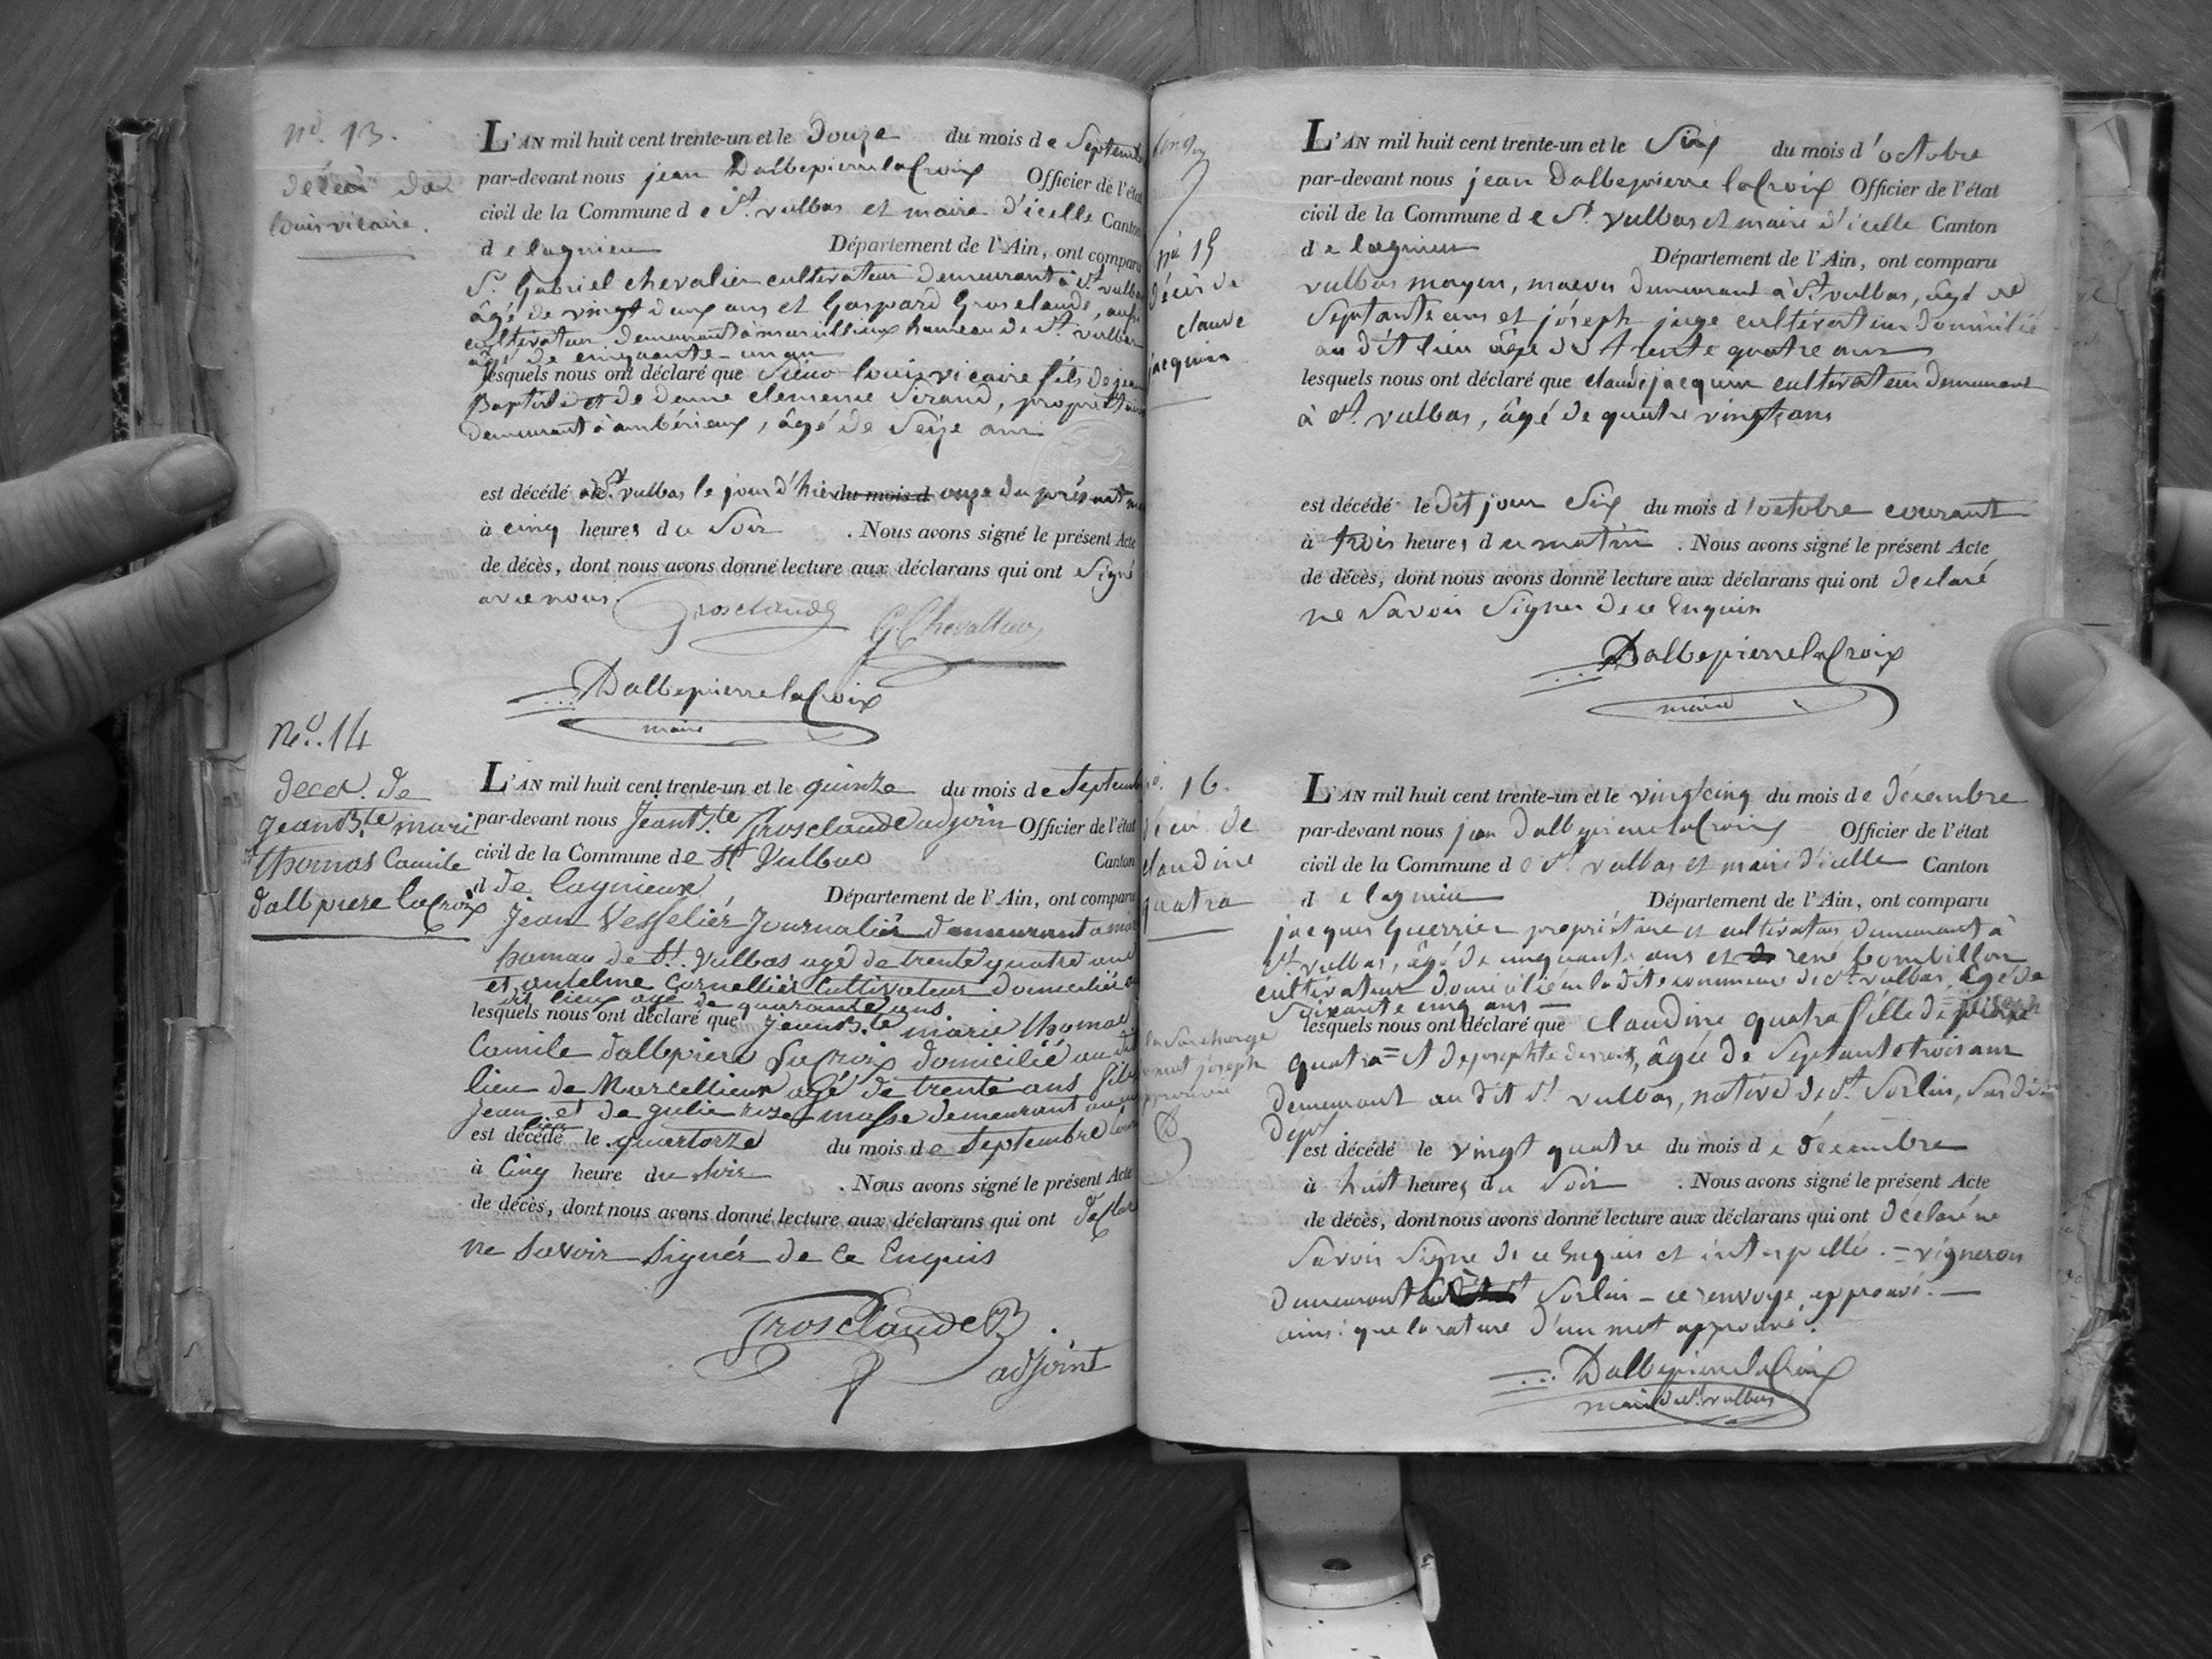 nº. 13.
décès de
louis vicaire.
L'AN mil huit cent trente-un et le Douze du mois de Septemb
par-devant nous jean Dalbepierre laCroix Officier de l'état
civil de la Commune de St. vulbas et maire d'icelle Canton
de lagnieu Département de l'Ain, ont comparu
Sr. Gabriel chevalier cultivateur demeurant à St. vulbas
âgé de vingt deux ans et Gaspard Grosclaude, aussi
cultivateur demeurant à marcillieux hameau de St. vulbas
âgé de cinquante-un an
lesquels nous ont déclaré que Sieur louis vicaire fils de jean
Baptiste et de dame clemence Sirand, propriétaire
demeurant à ambérieux, âgé de Seize ans
est décédé à St. vulbas le jour d'hier du mois d onze du présent mois
à cinq heures du Soir . Nous avons signé le présent Acte
de décès, dont nous avons donné lecture aux déclarans qui ont Signé
avec nous.
Grosclaude G. Chevallier
Dalbepierre laCroix
maire
No. 14
decet. de
Jean Bte. mari
thomas Camile
dalbpiere laCroix
L'AN mil huit cent trente-un et le quinze du mois de Septemb
par-devant nous Jean Bte. Grosclaude adjoin Officier de l'état
civil de la Commune de St Vulbas Canton
d de lagnieux Département de l'Ain, ont comparu
Jean Vesselier Journalier demeurant a mar
hamau de St. Vulbas agé de trente quatre ans
et antelme Cornellier Cultivateur domicilié au
dit lieux agé de quarante ans
lesquels nous ont déclaré que Jean B.te marie thomas
Camile dalbpiere LaCroix domicilié au dit
lieu de Marcellieux agé de trente ans fils
Jean et de gulie roze masse demeurant au
lieu
est décédé le quartorze du mois de Septembre
à Cinq heure du Soir . Nous avons signé le présent Acte
de décès, dont nous avons donné lecture aux déclarans qui ont declar
ne Savoir Signér de Ce Enquis
Grosclaude B
adjoint
nº 15
décès de
claude
jacquin
L'AN mil huit cent trente-un et le Six du mois d'octobre
par-devant nous jean Dalbepierre laCroix Officier de l'état
civil de la Commune de St. vulbas et maire d'icelle Canton
de lagnieu Département de l'Ain, ont comparu
vulbas moyen, maçon demeurant à St. vulbas, âgé de
Septante ans et jóseph juge cultivateur domicilié
au dit lieu âgé de trente quatre ans
lesquels nous ont déclaré que claude jacquin cultivateur demeurant
à St. vulbas, âgé de quatre vingts ans
est décédé le dit jour Six du mois d'octobre courant
à trois heures du matin . Nous avons signé le présent Acte
de décès, dont nous avons donné lecture aux déclarans qui ont déclaré
ne Savoir Signer de ce Enquis
Dalbepierre laCroix
maire
nº. 16.
décès de
claudine
quatra
L'AN mil huit cent trente-un et le vingt cinq du mois de décembre
par-devant nous jean Dalbepierre laCroix Officier de l'état
civil de la Commune de St. vulbas et maire d'icelle Canton
de lagnieu Département de l'Ain, ont comparu
jacques Guerrier propriétaire et cultivateur demeurant à
St. vulbas, âgé de cinquante ans et rené bombillon
cultivateur domicilié en la dite commune de St. vulbas, âgé de
Soixante cinq ans
lesquels nous ont déclaré que claudine quatra fille de joseph
quatra = et de josephte, âgée de Septante trois ans
demeurant au dit St. vulbas, native de St. Sorlin, Sus dit
dept
la Surcharge
du mot jóseph
approuvée
D
est décédé le vingt quatre du mois de décembre
à huit heures du Soir . Nous avons signé le présent Acte
de décès, dont nous avons donné lecture aux déclarans qui ont déclaré ne
Savoir Signe de ce Enquis et interpellés. = vigneron
demeurant à St Sorlin - ce renvoye approuvé. —
ainsi que la rature d'un mot approuvé.
Dalbepierre laCroix
maire de St. vulbas